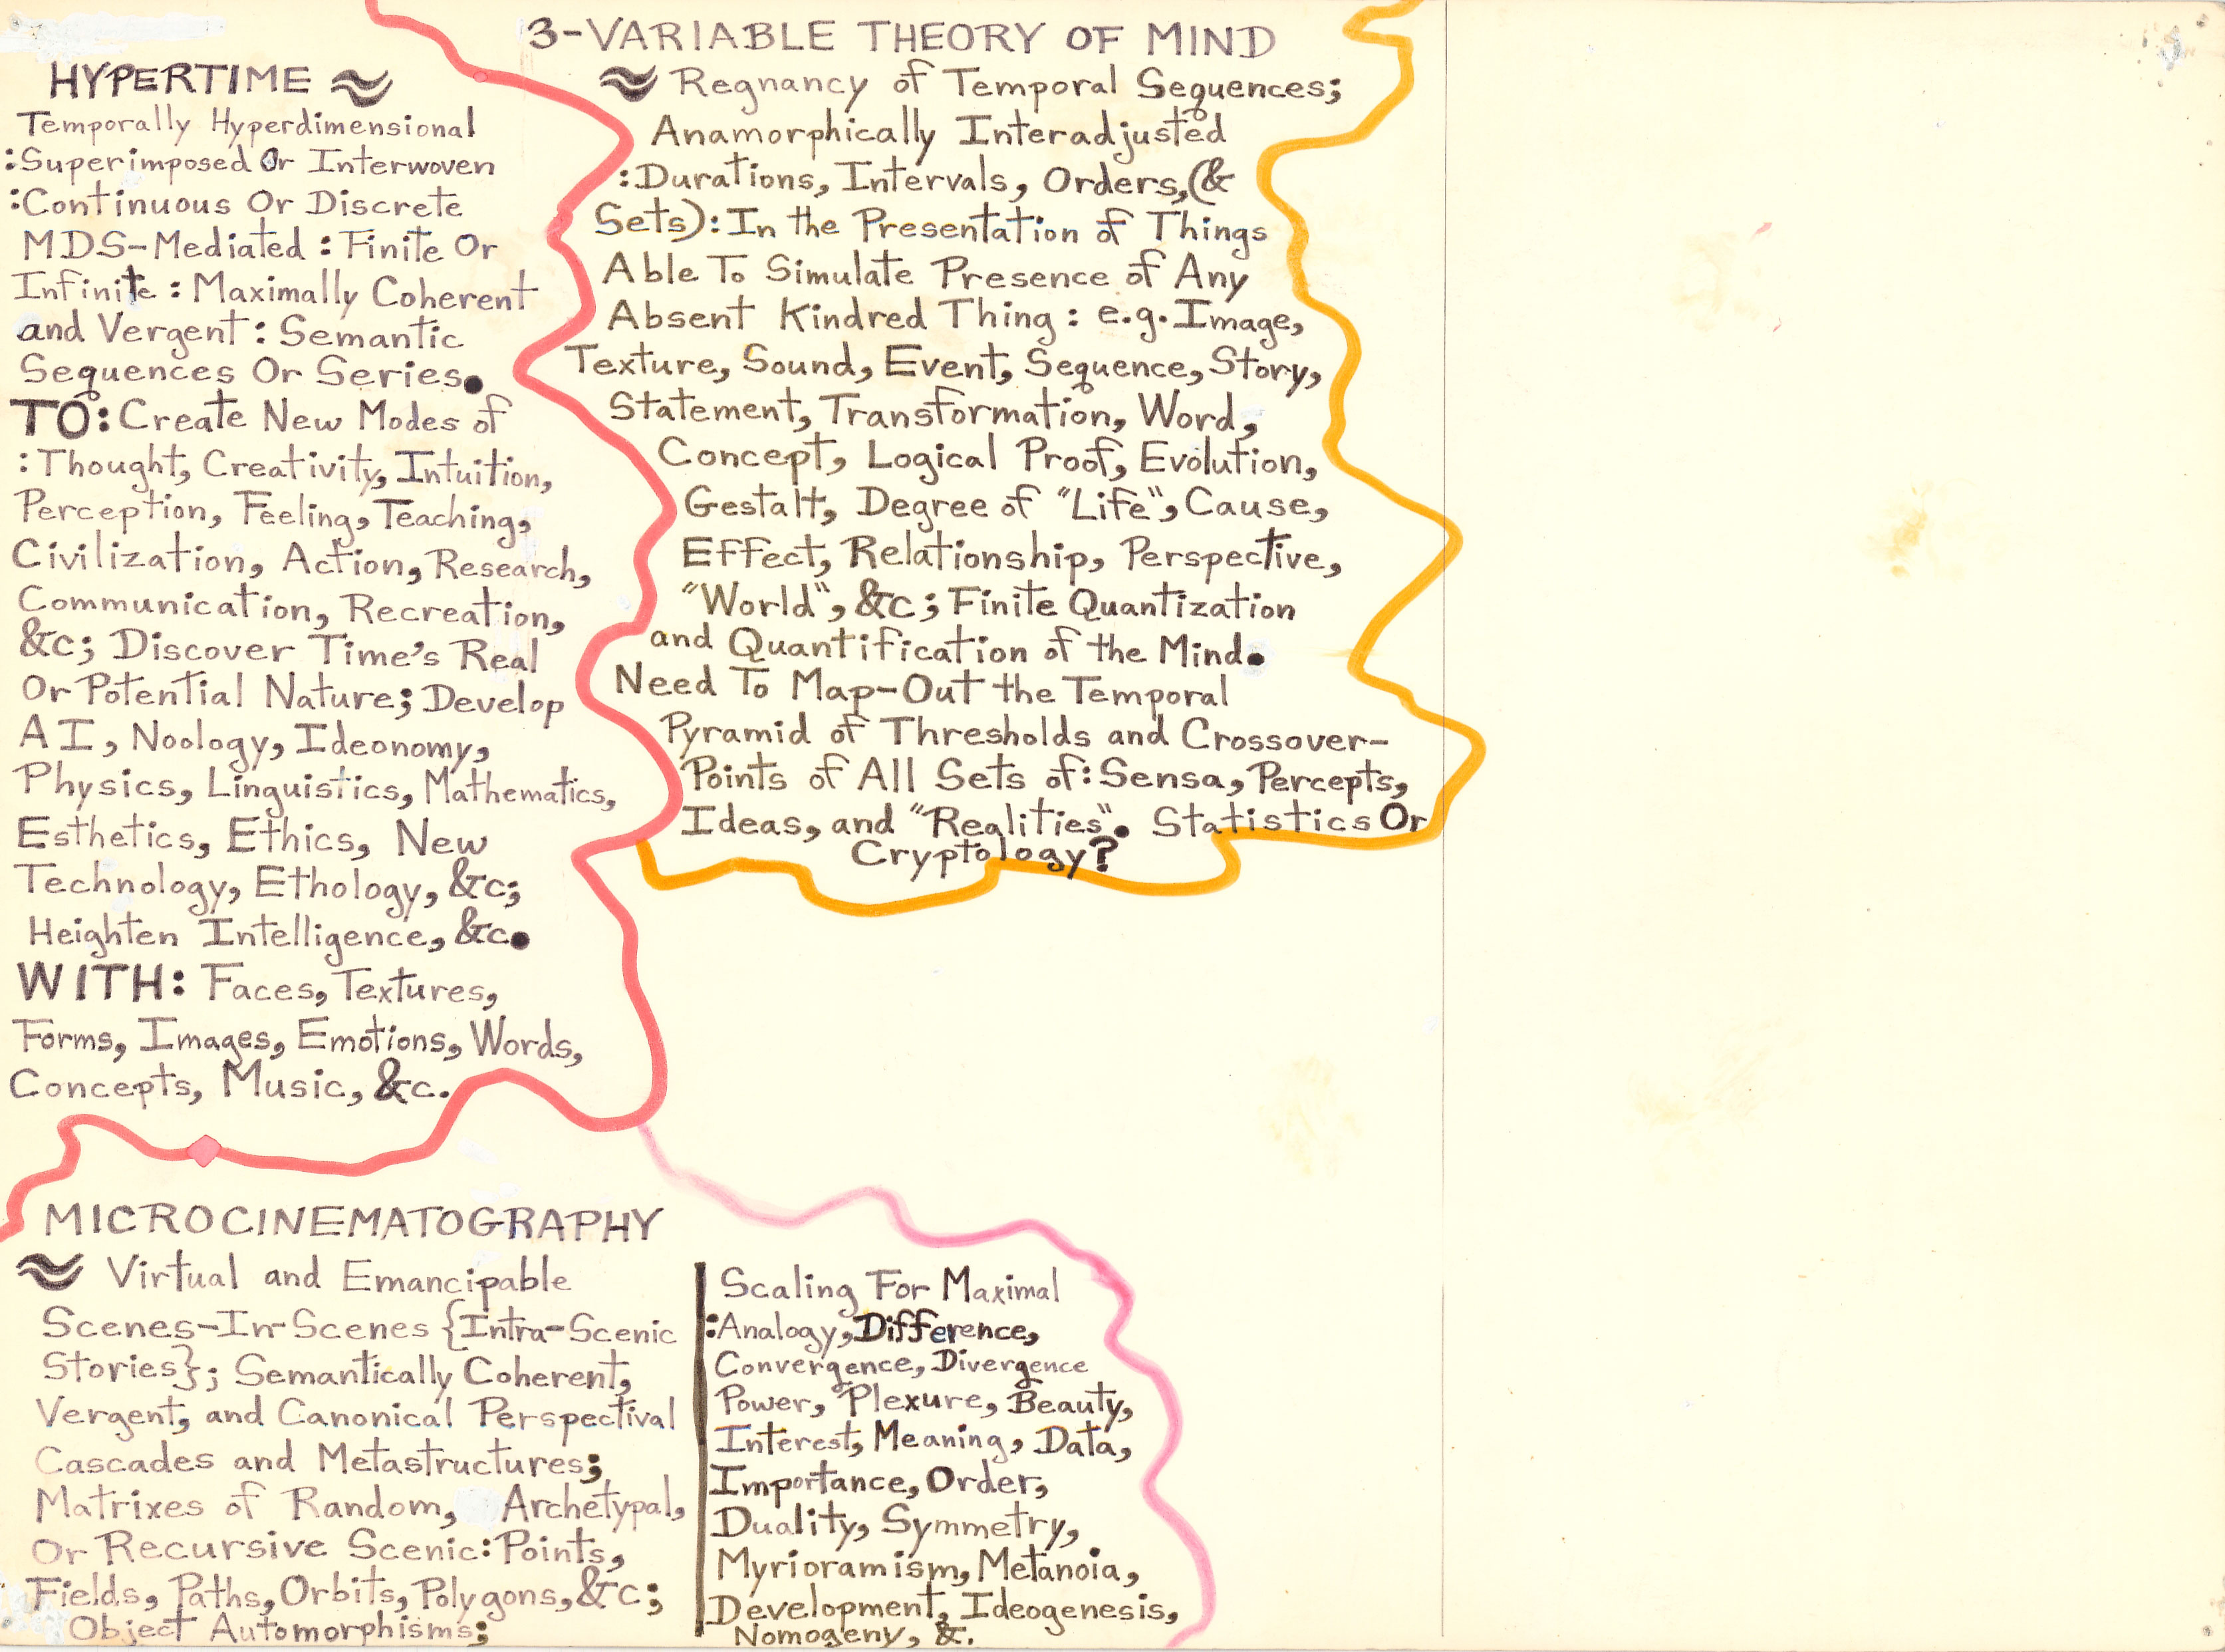 HYPERTIME ≈
Temporally Hyperdimensional
:Superimposed Or Interwoven
:Continuous Or Discrete
MDS-Mediated : Finite Or
Infinite : Maximally Coherent
and Vergent : Semantic
Sequences Or Series.
TO: Create New Modes of
: Thought, Creativity, Intuition,
Perception, Feeling, Teaching,
Civilization, Action, Research,
Communication, Recreation,
&c; Discover Time's Real
Or Potential Nature; Develop
AI, Noology, Ideonomy,
Physics, Linguistics, Mathematics,
Esthetics, Ethics, New
Technology, Ethology, &c;
Heighten Intelligence, &c.
WITH: Faces, Textures,
Forms, Images, Emotions, Words,
Concepts, Music, &c.
3-VARIABLE THEORY OF MIND
≈ Regnancy of Temporal Sequences;
Anamorphically Interadjusted
:Durations, Intervals, Orders, (&
Sets): In the Presentation of Things
Able To Simulate Presence of Any
Absent Kindred Thing : e.g. Image,
Texture, Sound, Event, Sequence, Story,
Statement, Transformation, Word,
Concept, Logical Proof, Evolution,
Gestalt, Degree of "Life", Cause,
Effect, Relationship, Perspective,
"World", &c; Finite Quantization
and Quantification of the Mind.
Need To Map-Out the Temporal
Pyramid of Thresholds and Crossover-
Points of All Sets of: Sensa, Percepts,
Ideas, and "Realities". Statistics Or
Cryptology?
MICROCINEMATOGRAPHY
≈ Virtual and Emancipable
Scenes-In-Scenes {Intra-Scenic
Stories}; Semantically Coherent,
Vergent, and Canonical Perspectival
Cascades and Metastructures;
Matrixes of Random, Archetypal,
Or Recursive Scenic: Points,
Fields, Paths, Orbits, Polygons, &c;
Object Automorphisms;
Scaling For Maximal
:Analogy, Difference,
Convergence, Divergence
Power, Plexure, Beauty,
Interest, Meaning, Data,
Importance, Order,
Duality, Symmetry,
Myrioramism, Metanoia,
Development, Ideogenesis,
Nomogeny, &.